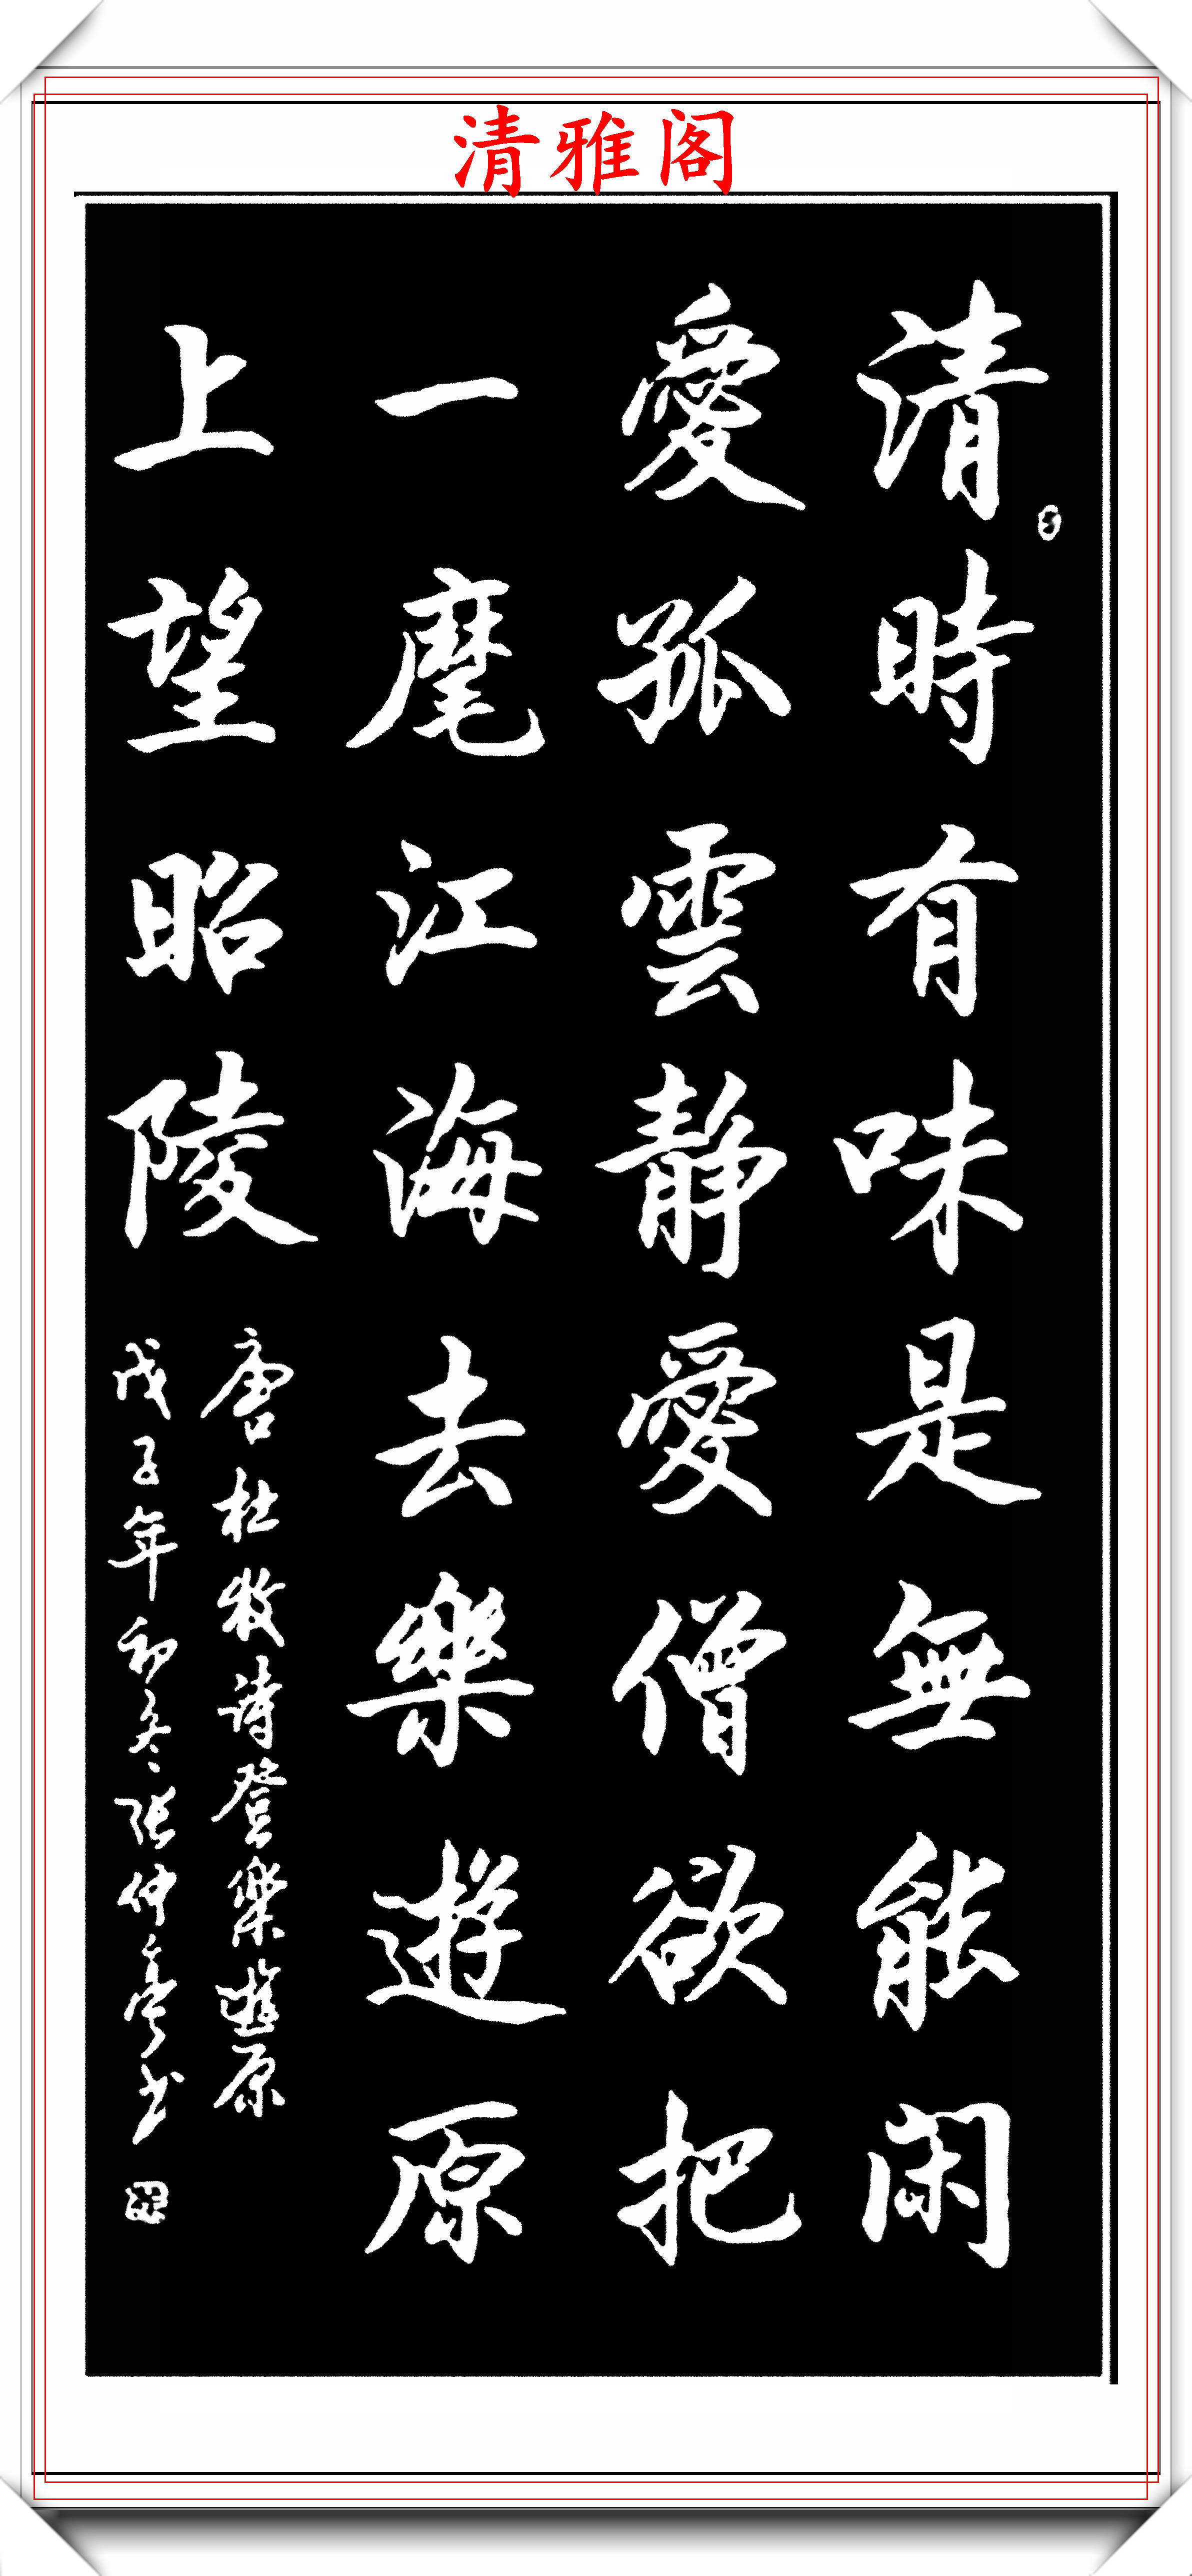 清雅阁
清時有味是無能闲
愛孤雲静愛僧欲把
一麾江海去樂遊原
上望昭陵
唐杜牧诗登樂遊原
戊子年初冬张仲亭书